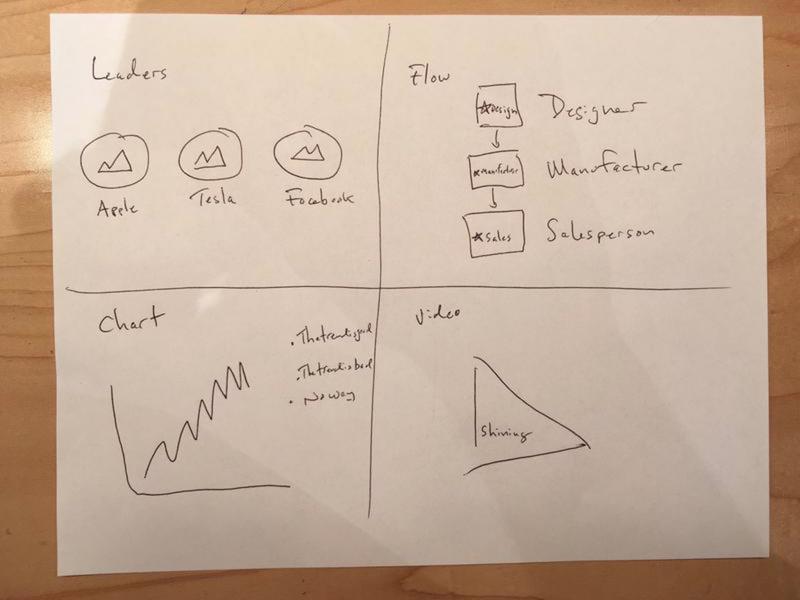 Leaders
Apple
Tesla
Facebook
Flow
★Design
Designer
★Manufacturer
Manufacturer
★Sales
Salesperson
Chart
• Thetrendisgood
• Thetrendisbad
• No way
Video
Shining